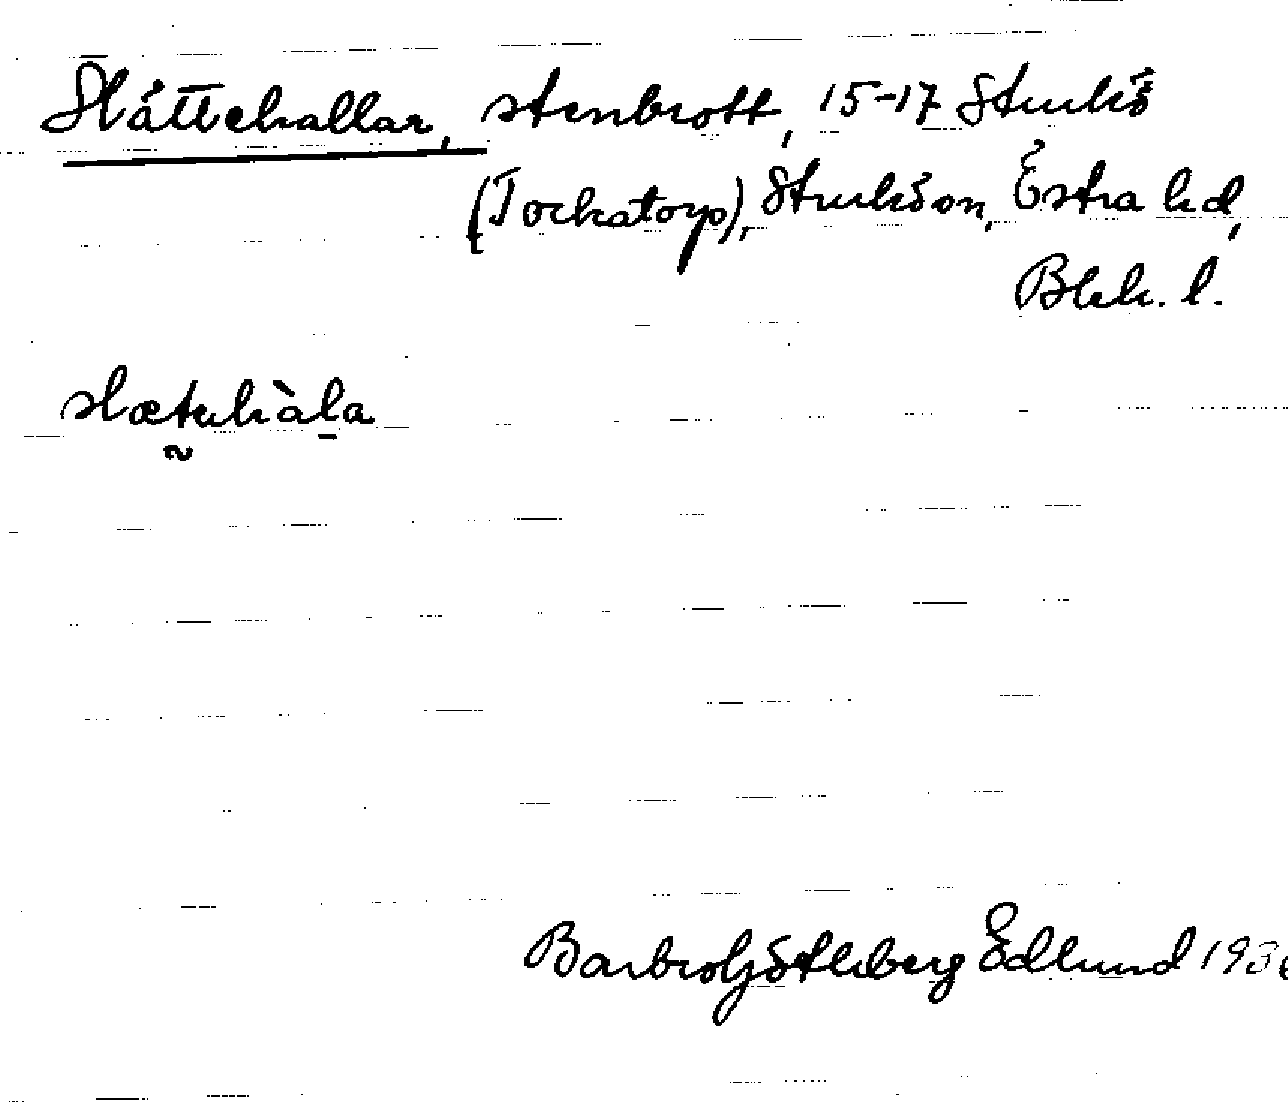 Slättekallar, stenbrott, 15-17 Sturkö
(Tockatorp), Sturkö sn, Östra hd,
Blek. l.
slætekàla
Barbro Götleberg Edlund 193